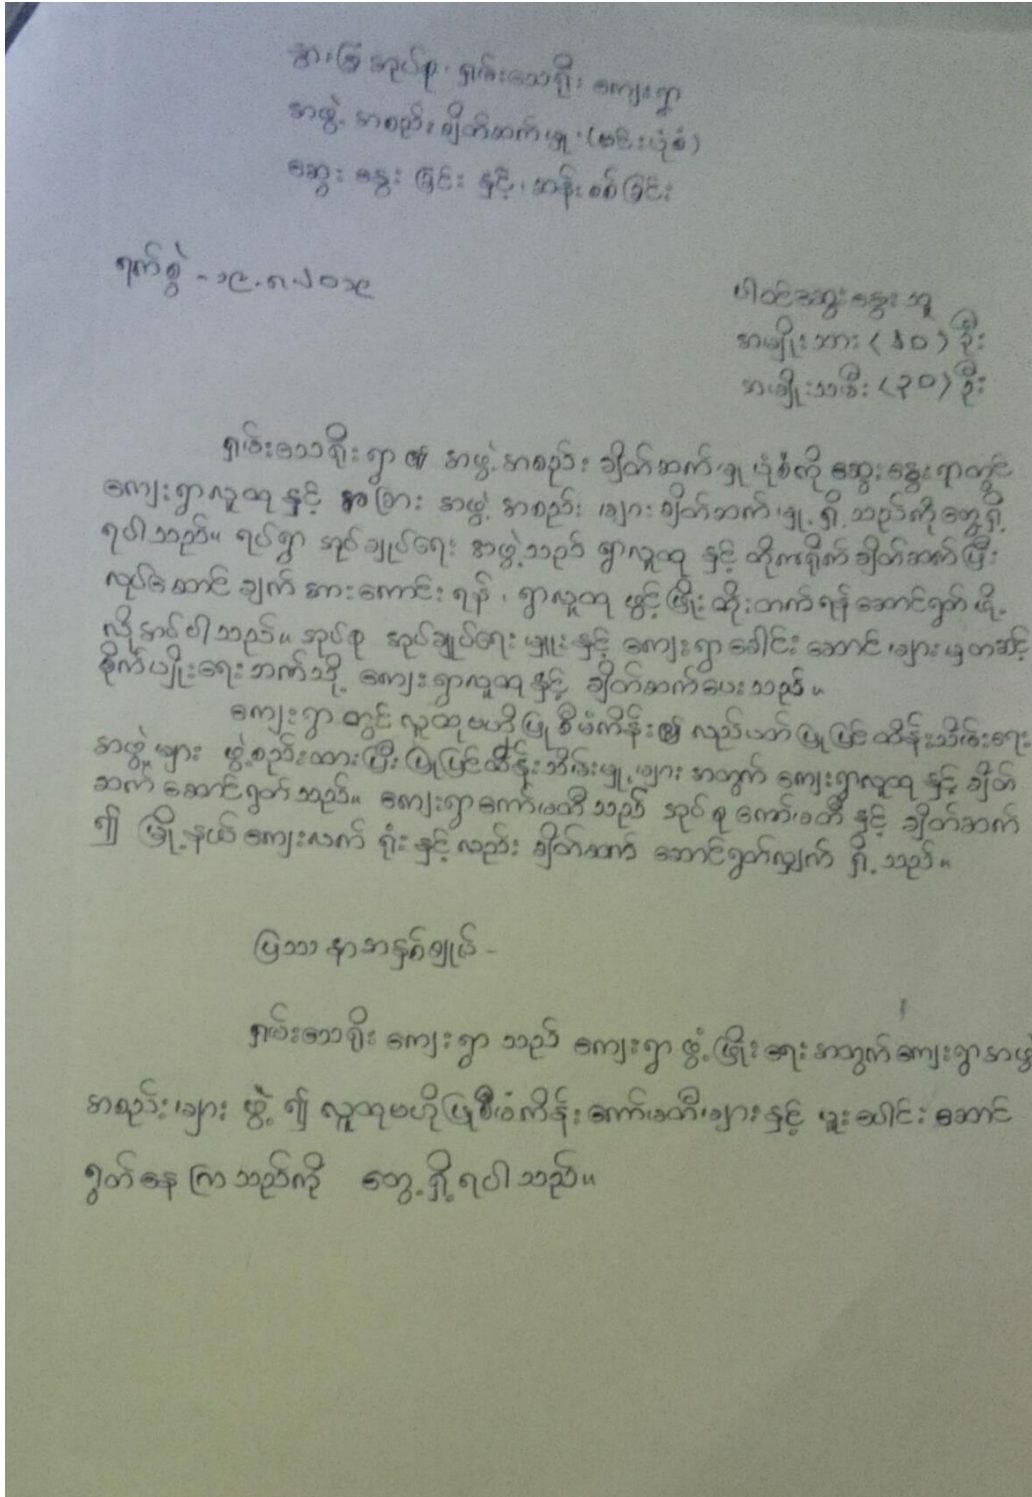 နွားခြံအုပ်စု၊ ရှမ်းသေရိုး ကျေးရွာ
အဖွဲ့ အစည်း ချိတ်ဆက်မှု (ဗင်းပုံစံ)
ဆွေး နွေး ခြင်း နှင့် ၊ ဆန်း စစ် ခြင်း
ရက်စွဲ - ၁၉.၈.၂၀၁၉
ပါဝင်ဆွေးနွေး သူ
အမျိုးသား (၁၀) ဦး
အမျိုးသမီး (၃၀) ဦး
ရှမ်းသေရိုး ရွာ ၏ အဖွဲ့ အစည်း ချိတ်ဆက်မှု ပုံစံကို ဆွေးနွေးရာတွင်
ကျေးရွာလူထု နှင့် အခြား အဖွဲ့ အစည်း များ ချိတ်ဆက်မှု ရှိ သည်ကိုတွေ့ရှိ
ရပါသည်။ ရပ်ရွာ အုပ်ချုပ်ရေး အဖွဲ့သည် ရွာလူထု နှင့် တိုက်ရိုက် ချိတ်ဆက်ပြီး
လုပ်ဆောင် ချက် အားကောင်း ရန် ၊ ရွာလူထု ဖွင့်ဖြိုး တိုးတက် ရန် ဆောင်ရွက် ဖို့
လိုအပ်ပါသည်။ အုပ်စု အုပ်ချုပ်ရေး မှူး နှင့် ကျေးရွာခေါင်း ဆောင် များမှတဆင့်
စိုက်ပျိုးရေးဘဏ်သို့ ကျေးရွာလူထု နှင့် ချိတ်ဆက်ပေးသည်။
ကျေးရွာ တွင် လူထုဗဟိုပြု စီမံကိန်း၍ လည်ပတ် ပြုပြင် ထိန်းသိမ်းရေး
အဖွဲ့များ ဖွဲ့စည်းထားပြီး ပြုပြင်ထိန်းသိမ်းမှု များ အတွက် ကျေးရွာလူထု နှင့် ချိတ်
ဆက် ဆောင်ရွက်သည်။ ကျေးရွာကော်မတီ သည် အုပ်စု ကော်မတီ နှင့် ချိတ်ဆက်
၍ မြို့နယ် ကျေးလက် ရုံး နှင့်လည်း ချိတ်ဆက် ဆောင်ရွက်လျှက် ရှိ သည်။
ပြဿ နာအနှစ်ချုပ် -
ရှမ်းသေရိုး ကျေးရွာ သည် ကျေးရွာ ဖွံ့ဖြိုး ရေး အတွက် ကျေးရွာအဖွဲ့
အစည်း များ ဖွဲ့ ၍ လူထုဗဟိုပြုစီမံကိန်း ကော်မတီများ နှင့် ပူးပေါင်း ဆောင်
ရွက်နေ ကြ သည်ကို တွေ့ ရှိ ရပါ သည်။